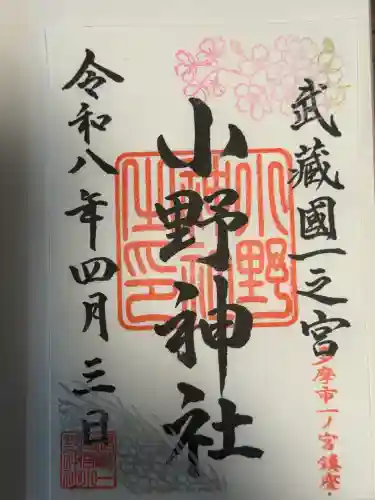 武藏國一之宮
多摩市一ノ宮鎮座
小野神社
小野神社之印
令和八年四月三日